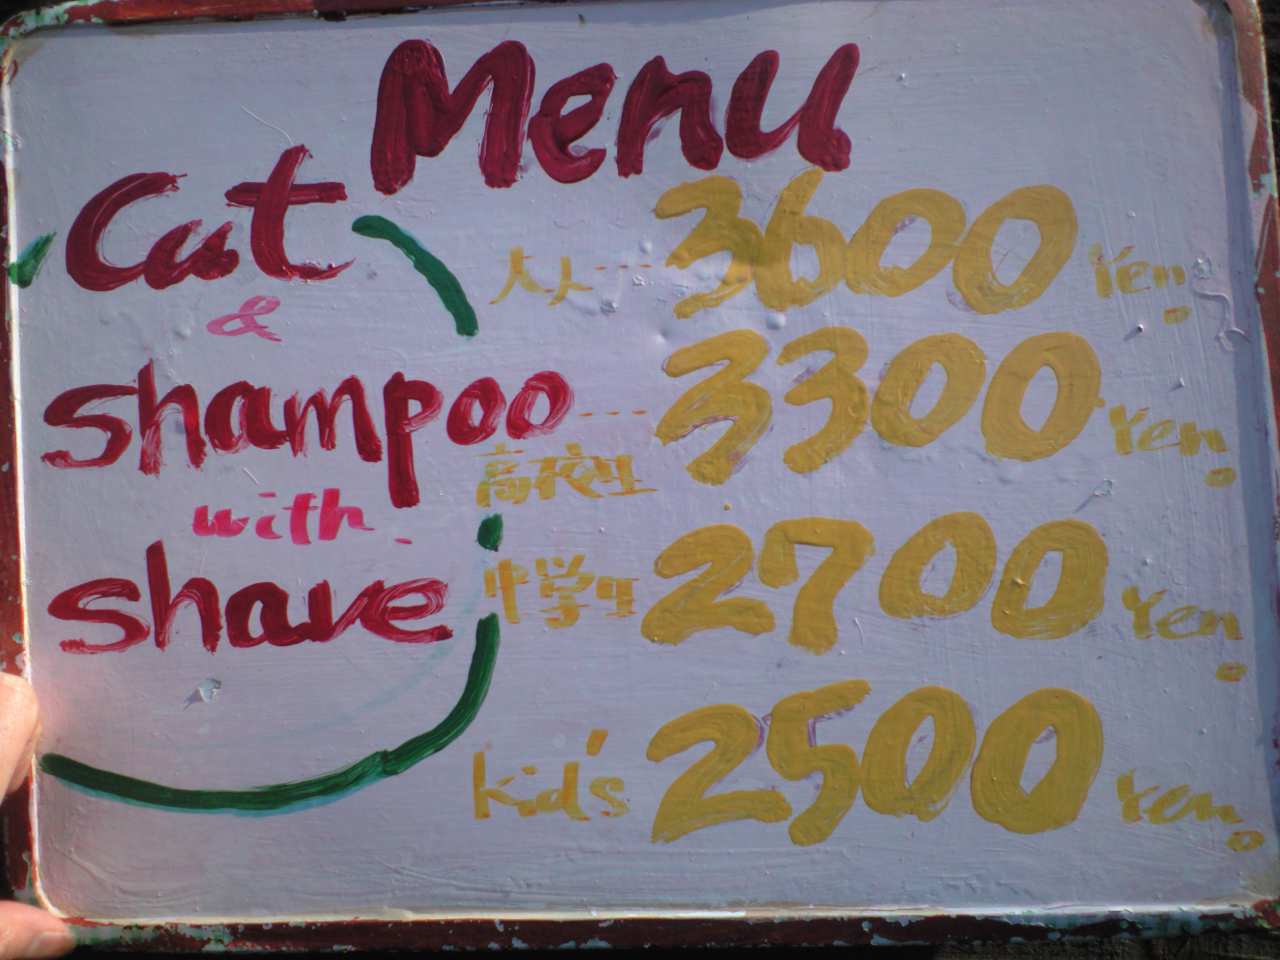 Menu
Cut
大人 3600 Yen.
&
shampoo 3300 Yen.
高校生
with
中学生 2700 Yen.
shave
kid's 2500 Yen.